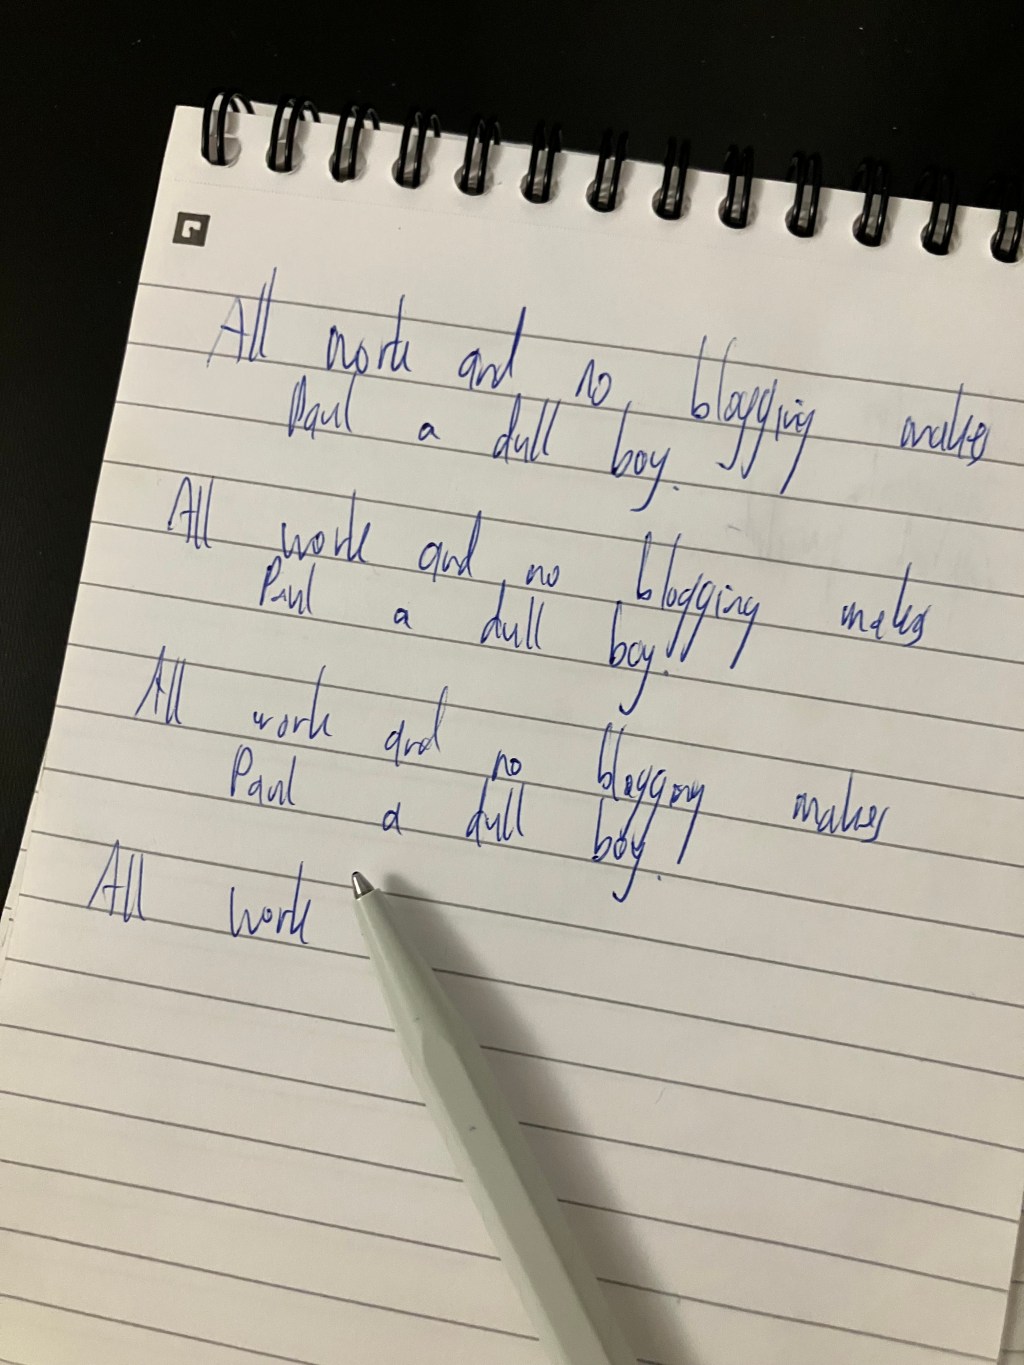 All work and no blogging makes
Paul a dull boy.
All work and no blogging makes
Paul a dull boy.
All work and no blogging makes
Paul a dull boy.
All work